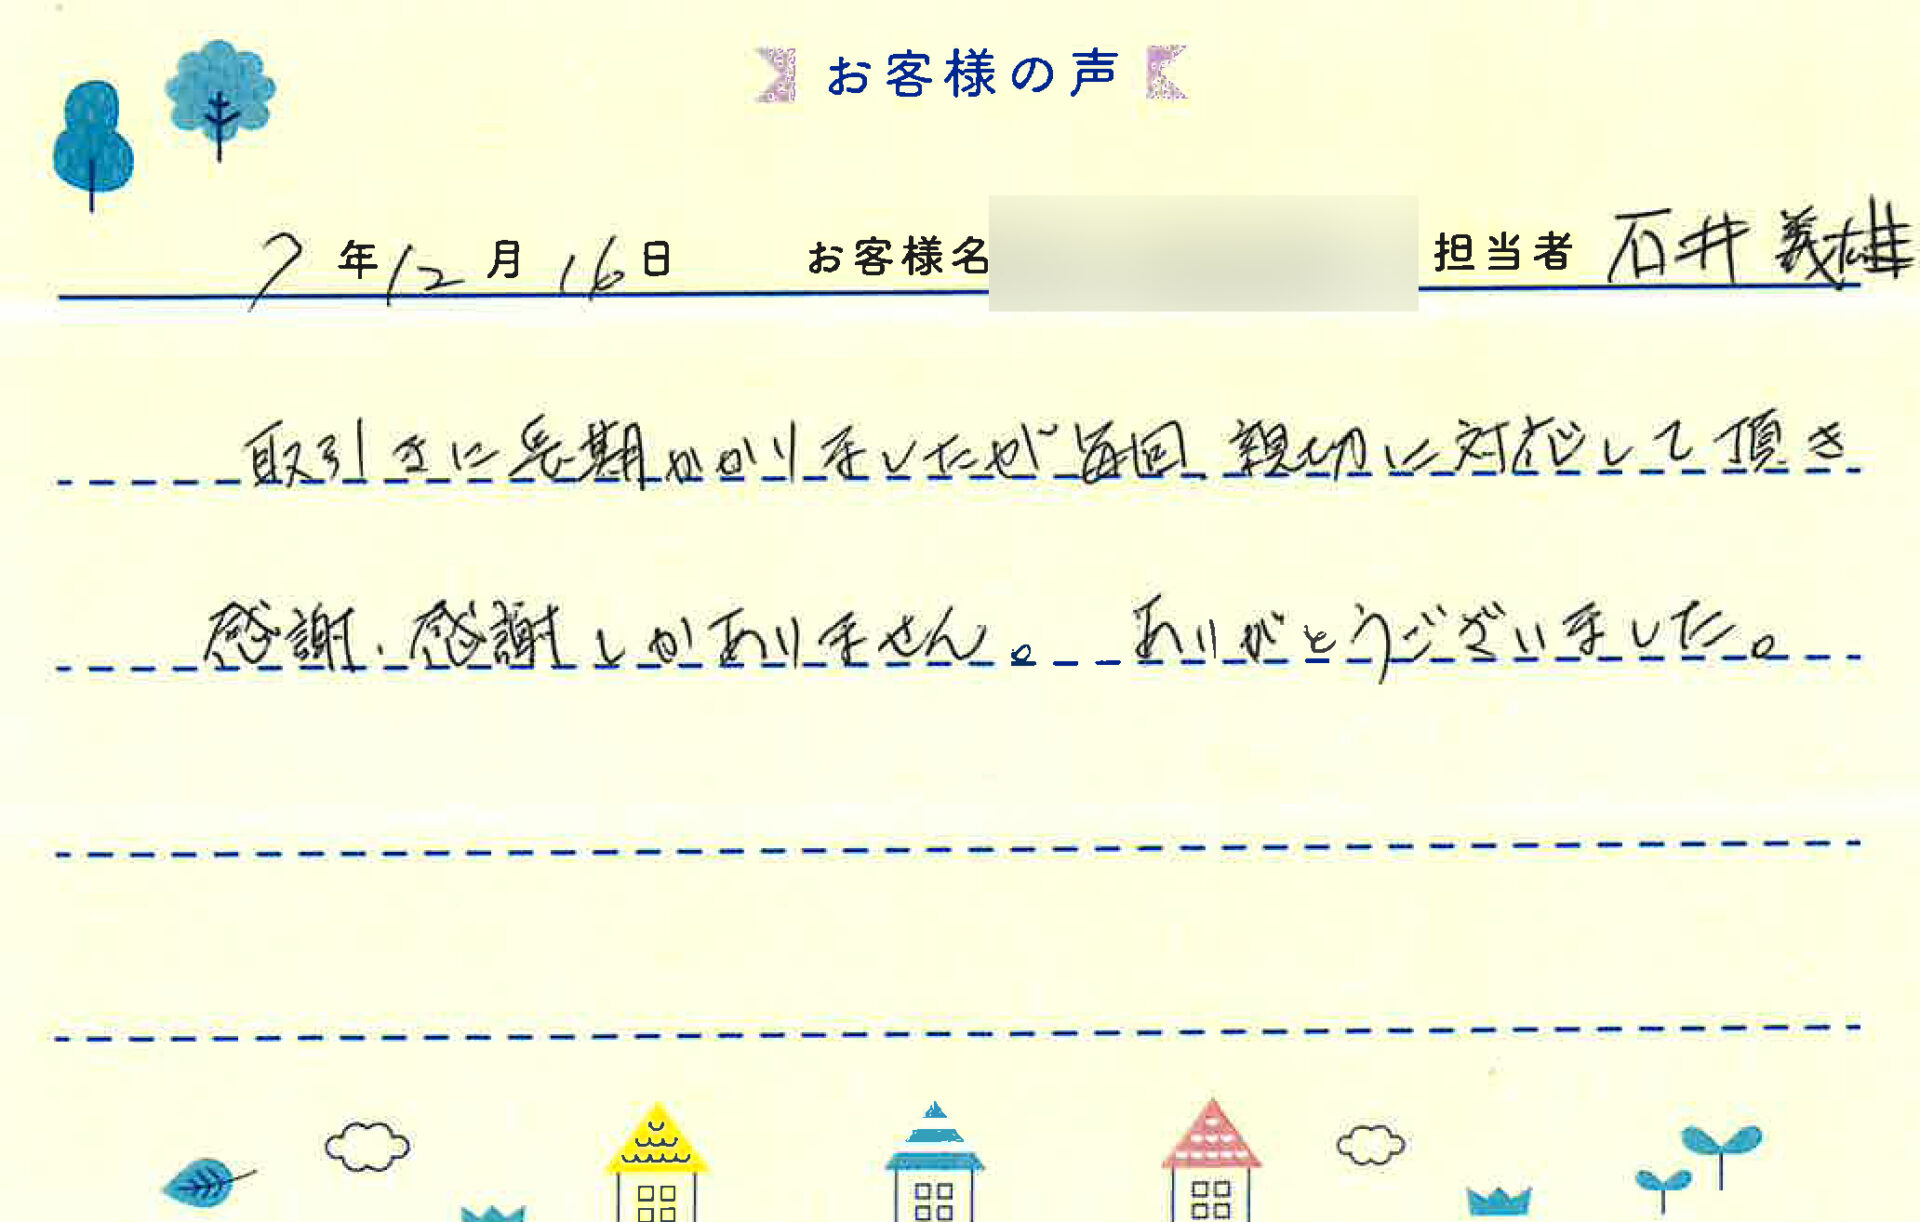 お客様の声
7年12月16日 お客様名 担当者 石井 義雄
取引きに長期かかりましたが毎回親切に対応して頂き
感謝、感謝しかありません。ありがとうございました。